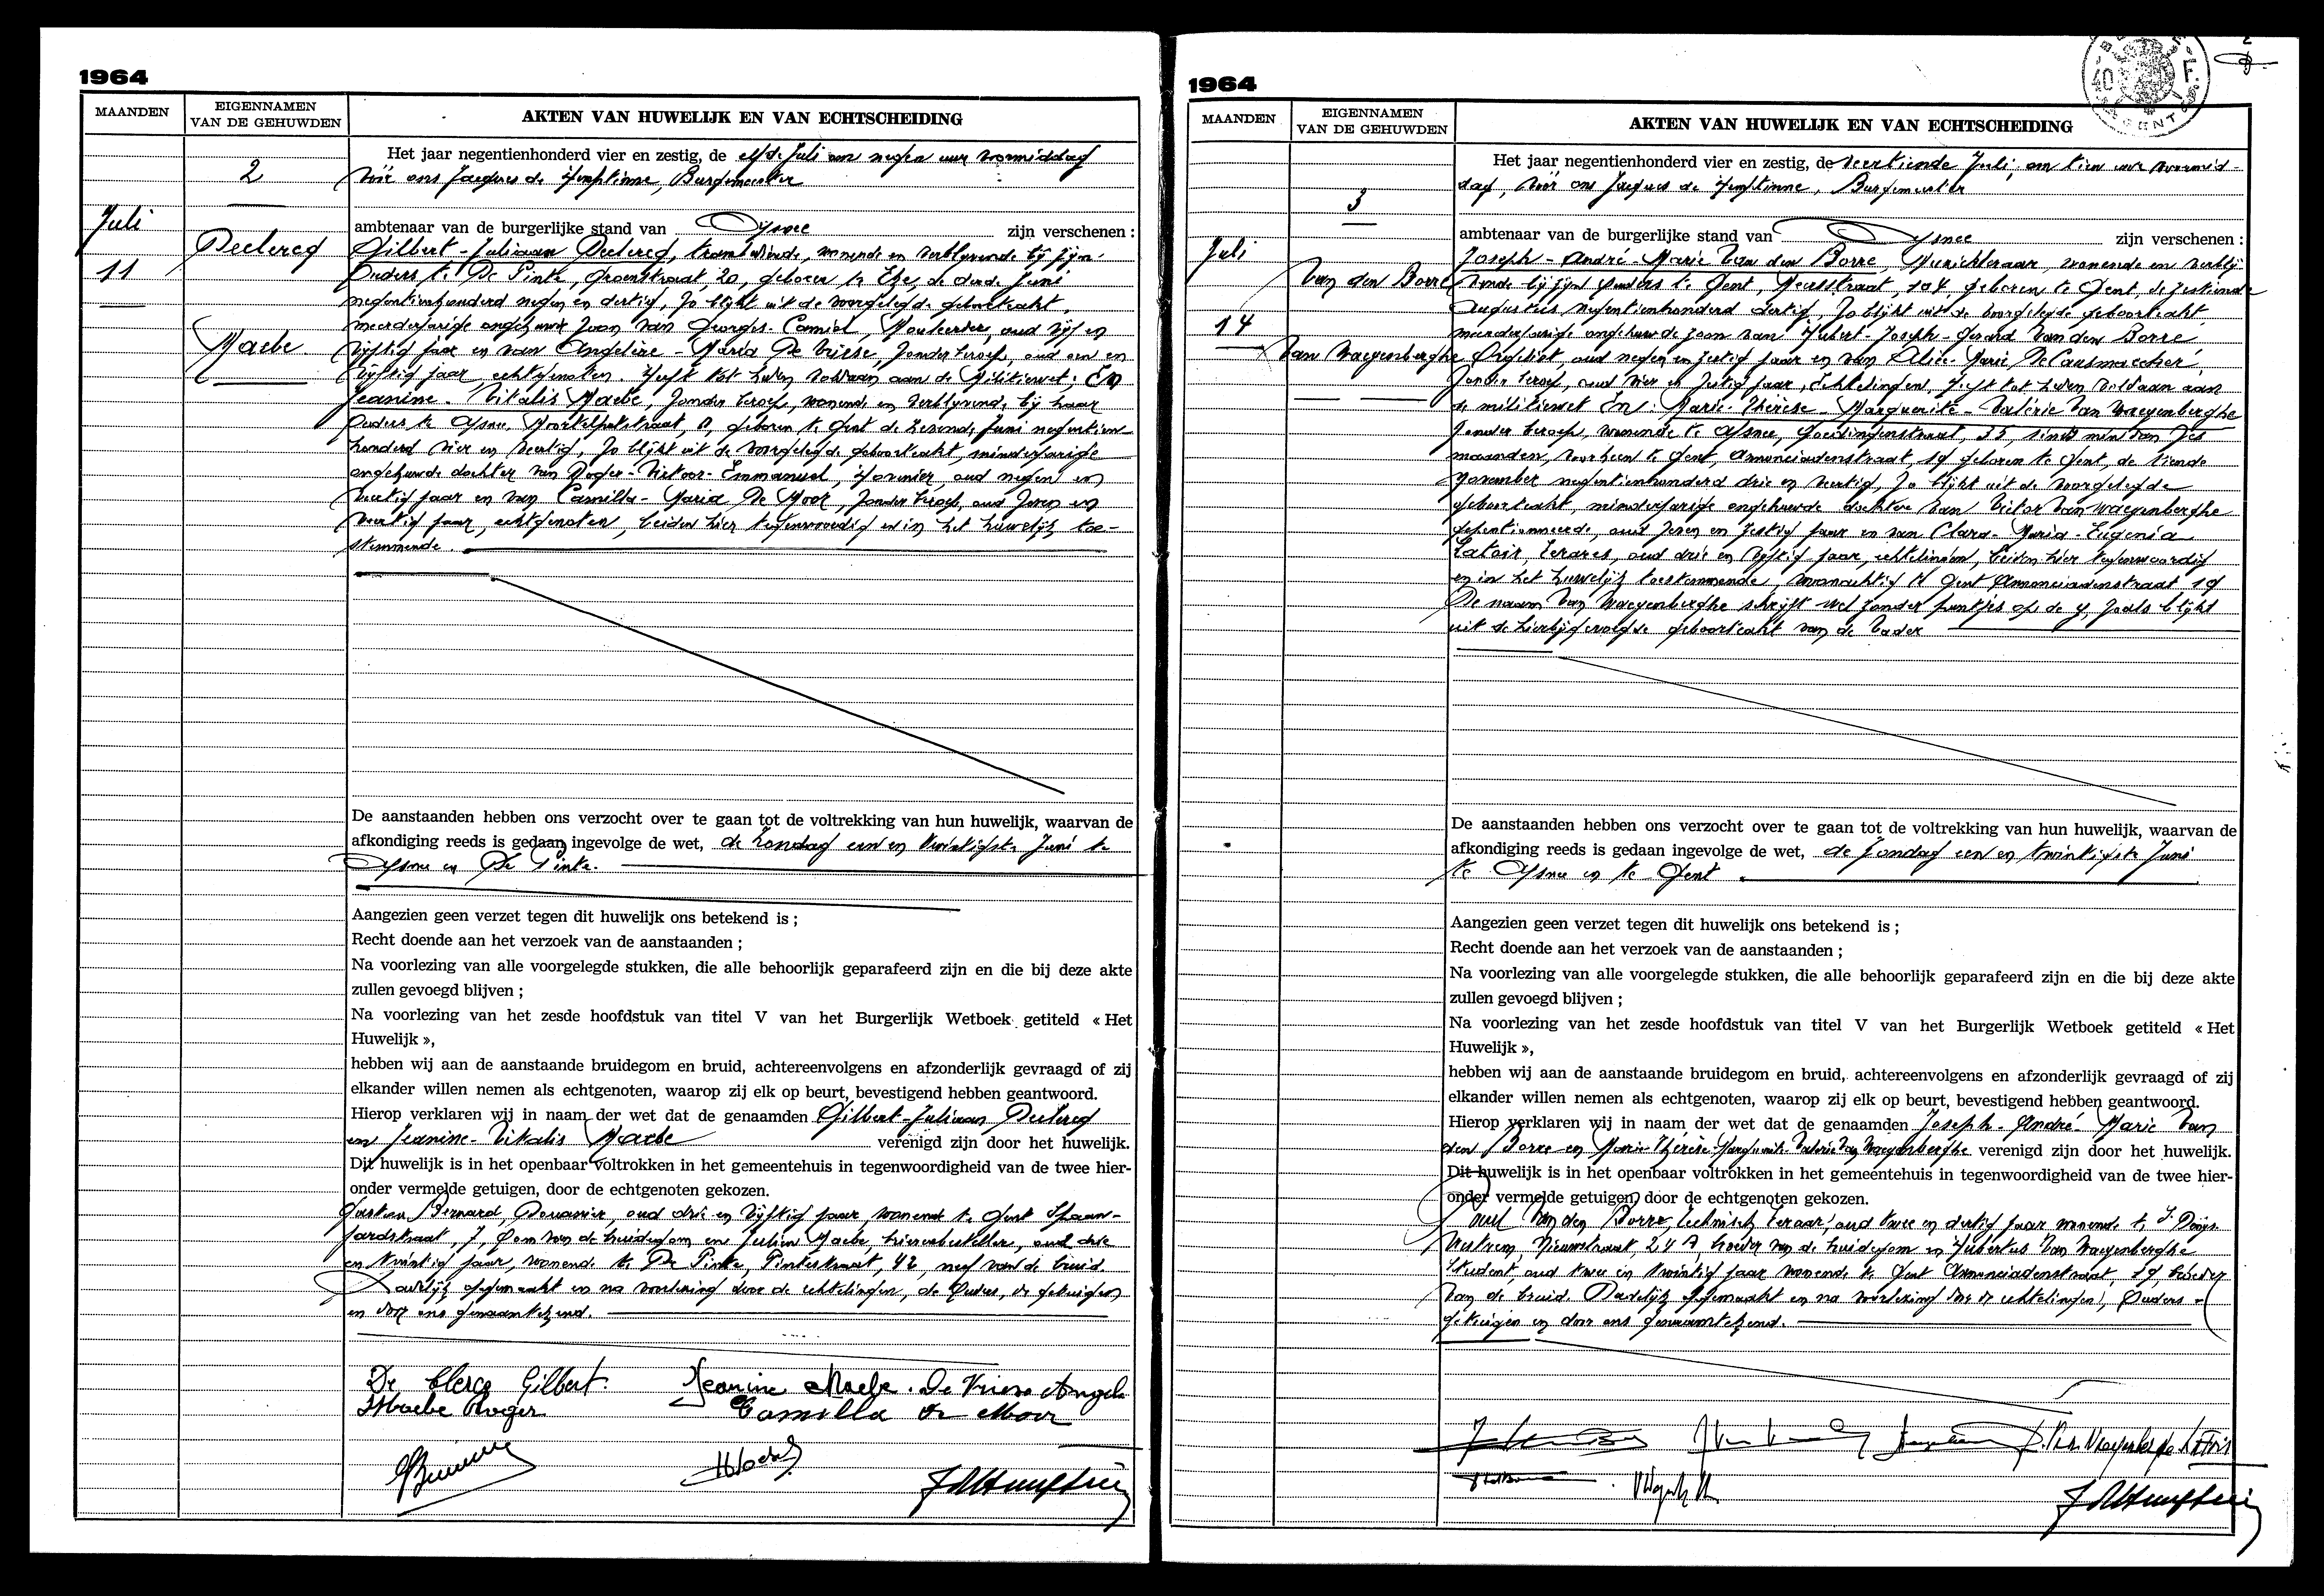 1964
MAANDEN
EIGENNAMEN
VAN DE GEHUWDEN
AKTEN VAN HUWELIJK EN VAN ECHTSCHEIDING
2
Juli
11
Declercq
Maebe
Het jaar negentienhonderd vier en zestig, de elfde Juli om negen uur voormiddag
Vóór ons Jacques de Hemptinne, Burgemeester
ambtenaar van de burgerlijke stand van Afsnee zijn verschenen :
Gilbert-Juliaan Declercq, wonende en verblijvende bij zijn
Ouders te De Pinte, Groenstraat, 20, geboren te Eke, de derde Juni
negentienhonderd negen en dertig, zo blijkt uit de voorgelegde geboorteakt,
meerderjarige ongehuwde zoon van Georges-Camiel, oud vijf en
vijftig jaar en van Angelène-Maria De Vriese, zonder beroep, oud een en
vijftig jaar, echtgenoten. Heeft tot heden voldaan aan de Militiewet; En
Jeanine-Vitalis Maebe, zonder beroep, wonende en verblijvende bij haar
Ouders te Afsnee, 8, geboren te Gent de Juni negentien-
honderd vier en veertig, zo blijkt uit de voorgelegde geboorteakt, minderjarige
ongehuwde dochter van Roger-Victoor-Emmanuel, Hovenier, oud negen en
veertig jaar en van Camilla-Maria De Moor, zonder beroep, oud zeven en
veertig jaar, echtgenoten, beiden hier tegenwoordig en in het huwelijk toe-
stemmende.
De aanstaanden hebben ons verzocht over te gaan tot de voltrekking van hun huwelijk, waarvan de
afkondiging reeds is gedaan ingevolge de wet, de Zondag een en twintigste Juni te
Afsnee en De Pinte.
Aangezien geen verzet tegen dit huwelijk ons betekend is ;
Recht doende aan het verzoek van de aanstaanden ;
Na voorlezing van alle voorgelegde stukken, die alle behoorlijk geparafeerd zijn en die bij deze akte
zullen gevoegd blijven ;
Na voorlezing van het zesde hoofdstuk van titel V van het Burgerlijk Wetboek getiteld « Het
Huwelijk »,
hebben wij aan de aanstaande bruidegom en bruid, achtereenvolgens en afzonderlijk gevraagd of zij
elkander willen nemen als echtgenoten, waarop zij elk op beurt, bevestigend hebben geantwoord.
Hierop verklaren wij in naam der wet dat de genaamden Gilbert-Juliaan Declercq
en Jeanine-Vitalis Maebe verenigd zijn door het huwelijk.
Dit huwelijk is in het openbaar voltrokken in het gemeentehuis in tegenwoordigheid van de twee hier-
onder vermelde getuigen, door de echtgenoten gekozen.
Bernard, Douanier, oud drie en vijftig jaar, wonende te Gent Spaan-
jaardstraat, 7, Oom van de bruidegom en Julien Maebe, brievenbesteller, oud drie
en twintig jaar, wonende te De Pinte, Pintestraat, 42, neef van de bruid.
Dadelijk opgemaakt en na voorlezing door de echtelingen, de Ouders, de getuigen
en door ons genaamtekend.
De Clercq Gilbert. Jeanine Maebe. De Vriese Angele
Maebe Roger Camilla De Moor
1964
MAANDEN
EIGENNAMEN
VAN DE GEHUWDEN
AKTEN VAN HUWELIJK EN VAN ECHTSCHEIDING
40 F.
3
Juli
14
Van den Borre
Van Waeyenberghe
Het jaar negentienhonderd vier en zestig, de veertiende Juli, om tien uur voormid-
dag, Vóór ons Jacques de Hemptinne, Burgemeester
ambtenaar van de burgerlijke stand van Afsnee zijn verschenen :
Joseph-André-Marie Van den Borre, Muziekleraar, wonende en verblij-
vende bij zijn Ouders te Gent, Meersstraat, 104, geboren te Gent, de zestiende
Augustus negentienhonderd dertig, zo blijkt uit de voorgelegde geboorteakt,
meerderjarige ongehuwde zoon van Hubert-Joseph-Gerard Van den Borre
Orgelist, oud negen en zestig jaar en van Alice-Marie De Causmaecker,
zonder beroep, oud vier en zestig jaar, Echtelingen, heeft tot heden voldaan aan
de militiewet En: Marie-Thérèse-Marguerite-Valérie Van Waeyenberghe
zonder beroep, wonende te Afsnee, Goedingenstraat, 35, sinds min dan zes
maanden, voorheen te Gent, Annonciadenstraat, 19 geboren te Gent, de tiende
November negentienhonderd drie en veertig, zo blijkt uit de voorgelegde
geboorteakt, minderjarige ongehuwde dochter van Victor Van Waeyenberghe
gepensionneerde, oud zeven en zestig jaar en van Clara-Maria-Eugenia
Latoir, Lerares, oud drie en vijftig jaar, echtelingen, beiden hier tegenwoordig
en in het huwelijk toestemmende, woonachtig te Gent Annonciadenstraat 19
De naam Van Waeyenberghe schrijft wel zonder puntjes op de y, zoals blijkt
uit de hierbijgevoegde geboorteakt van de Vader
De aanstaanden hebben ons verzocht over te gaan tot de voltrekking van hun huwelijk, waarvan de
afkondiging reeds is gedaan ingevolge de wet, de zondag een en twintigste Juni
te Afsnee en te Gent.
Aangezien geen verzet tegen dit huwelijk ons betekend is ;
Recht doende aan het verzoek van de aanstaanden ;
Na voorlezing van alle voorgelegde stukken, die alle behoorlijk geparafeerd zijn en die bij deze akte
zullen gevoegd blijven ;
Na voorlezing van het zesde hoofdstuk van titel V van het Burgerlijk Wetboek getiteld « Het
Huwelijk »,
hebben wij aan de aanstaande bruidegom en bruid, achtereenvolgens en afzonderlijk gevraagd of zij
elkander willen nemen als echtgenoten, waarop zij elk op beurt, bevestigend hebben geantwoord.
Hierop verklaren wij in naam der wet dat de genaamden Joseph-André-Marie Van
den Borre en Marie-Thérèse-Marguerite-Valérie Van Waeyenberghe verenigd zijn door het huwelijk.
Dit huwelijk is in het openbaar voltrokken in het gemeentehuis in tegenwoordigheid van de twee hier-
onder vermelde getuigen, door de echtgenoten gekozen.
Van den Borre technisch leraar, oud twee en dertig jaar wonende te St Denijs
Westrem, Nieuwstraat, 24 A, broeder van de bruidegom en Hubertus Van Waeyenberghe
student, oud twee en twintig jaar wonende te Gent Annonciadenstraat, 19 broeder
van de bruid. Dadelijk opgemaakt en na voorlezing door de echtelingen, Ouders
getuigen en door ons genaamtekend.